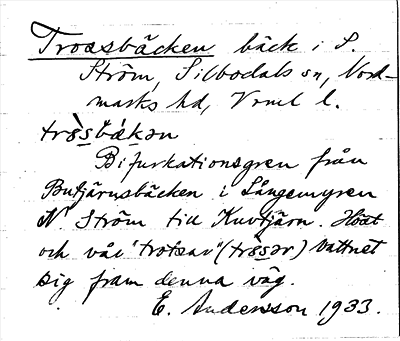 Trossbäcken bäck i S.
Ström, Silbodals sn, Nord-
marks hd, Vrml l.
trò̀s̠s̠bä́kən
Bifurkationsgren från
Butjärnsbäcken i Långemyren
N. Ström till Kuvtjärn. Höst
och vår "trotsar" (trò̀s̠ər) vattnet
sig fram denna väg.
E. Andersson 1933.